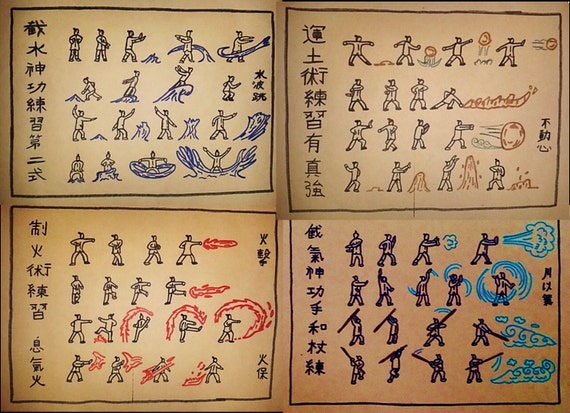 截水神功練習第二式
水波
運土術練習有真強
不動心
制火術練習 息氣火
火擊
火保
截氣神功手和杖練